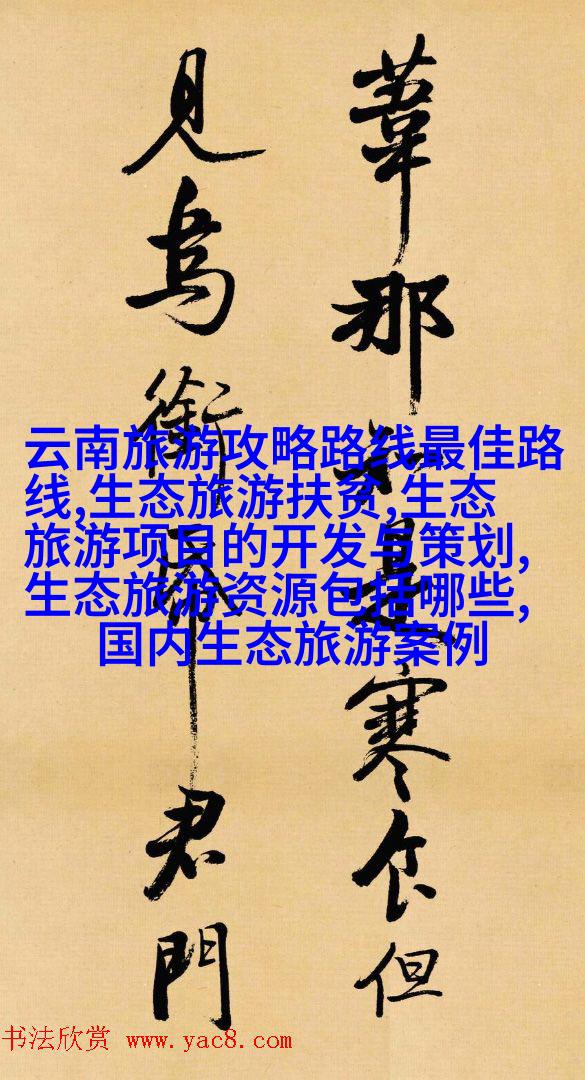 葦那知是寒食但
見烏銜帋君門
云南旅游攻略路线最佳路
线,生态旅游扶贫,生态
旅游项目的开发与策划,
生态旅游资源包括哪些,
国内生态旅游案例
书法欣赏 www.yac8.com